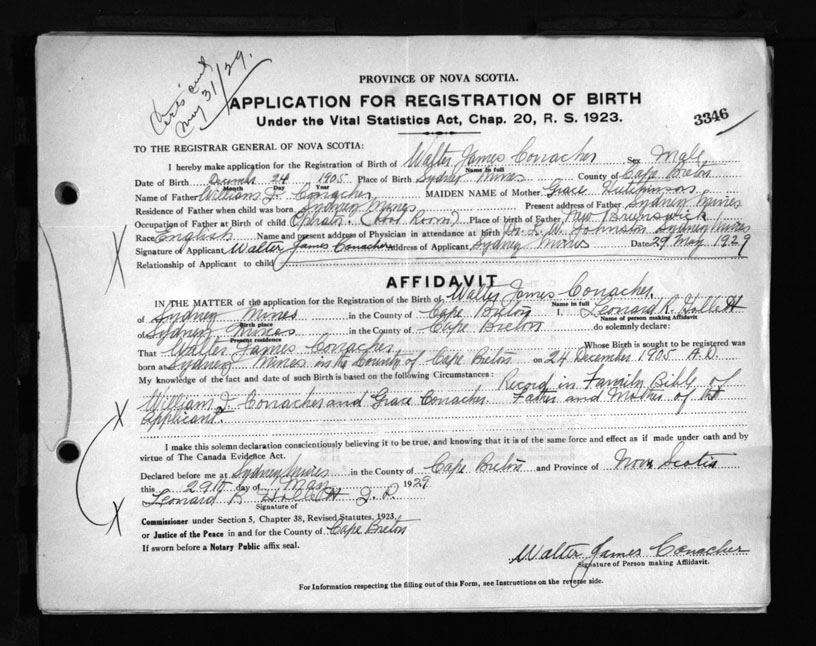 May 31/29.
PROVINCE OF NOVA SCOTIA.
APPLICATION FOR REGISTRATION OF BIRTH
Under the Vital Statistics Act, Chap. 20, R. S. 1923.
3346
TO THE REGISTRAR GENERAL OF NOVA SCOTIA:
I hereby make application for the Registration of Birth of Walter James Conacher Sex Male
Name in full
Date of Birth December 24 1905 Place of Birth Sydney Mines County of Cape Breton
Month Day Year
Name of Father William J. Conacher MAIDEN NAME of Mother Grace Hutchinson
Residence of Father when child was born Sydney Mines Present address of Father Sydney Mines
Occupation of Father at Birth of child Place of Birth of Father New Brunswick
Race English Name and present address of Physician in attendance at birth Dr. L. W. Johnston Sydney Mines
Signature of Applicant Walter James Conacher Address of Applicant Sydney Mines Date 29 May 1929
Relationship of Applicant to child
AFFIDAVIT
IN THE MATTER of the application for the Registration of the Birth of Walter James Conacher.
Name in full
of Sydney Mines in the County of Cape Breton I, Leonard R. Hollett
Birth place Name of person making Affidavit
of Sydney Mines in the County of Cape Breton do solemnly declare:
Present residence
That Walter James Conacher Whose Birth is sought to be registered was
born at Sydney Mines in the County of Cape Breton on 24 December 1905 A.D.
My knowledge of the fact and date of such Birth is based on the following Circumstances: Record in Family Bible of
William J. Conacher and Grace Conacher Father and Mother of the
Applicant.
I make this solemn declaration conscientiously believing it to be true, and knowing that it is of the same force and effect as if made under oath and by
virtue of The Canada Evidence Act.
Declared before me at Sydney Mines in the County of Cape Breton and Province of Nova Scotia
this 29th day of May 1929
Leonard R. Hollett J. P.
Signature of
Commissioner under Section 5, Chapter 38, Revised Statutes, 1923,
or Justice of the Peace in and for the County of Cape Breton
If sworn before a Notary Public affix seal.
Walter James Conacher
Signature of Person making Affidavit.
For Information respecting the filling out of this Form, see Instructions on the reverse side.